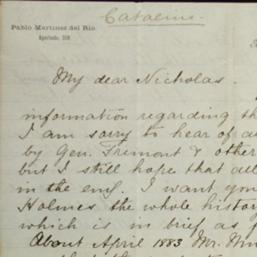 Catalina.
Pablo Martinez del Rio
Apartado, 
My dear Nicholas.
information regarding th
I am sorry to hear of
by Gen. Fremont & other
but I still hope that all
in the end. I want you
Holmes the whole histor
which is in brief as
About April 1883 Mr.